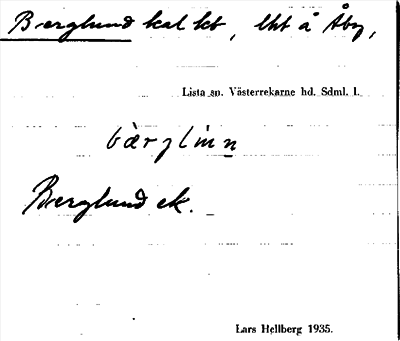 Berglund kal kt, lht å Åby,
Lista sn. Västerrekarne hd. Sdml. l.
bærglinn
Berglund ek.
Lars Hellberg 1935.